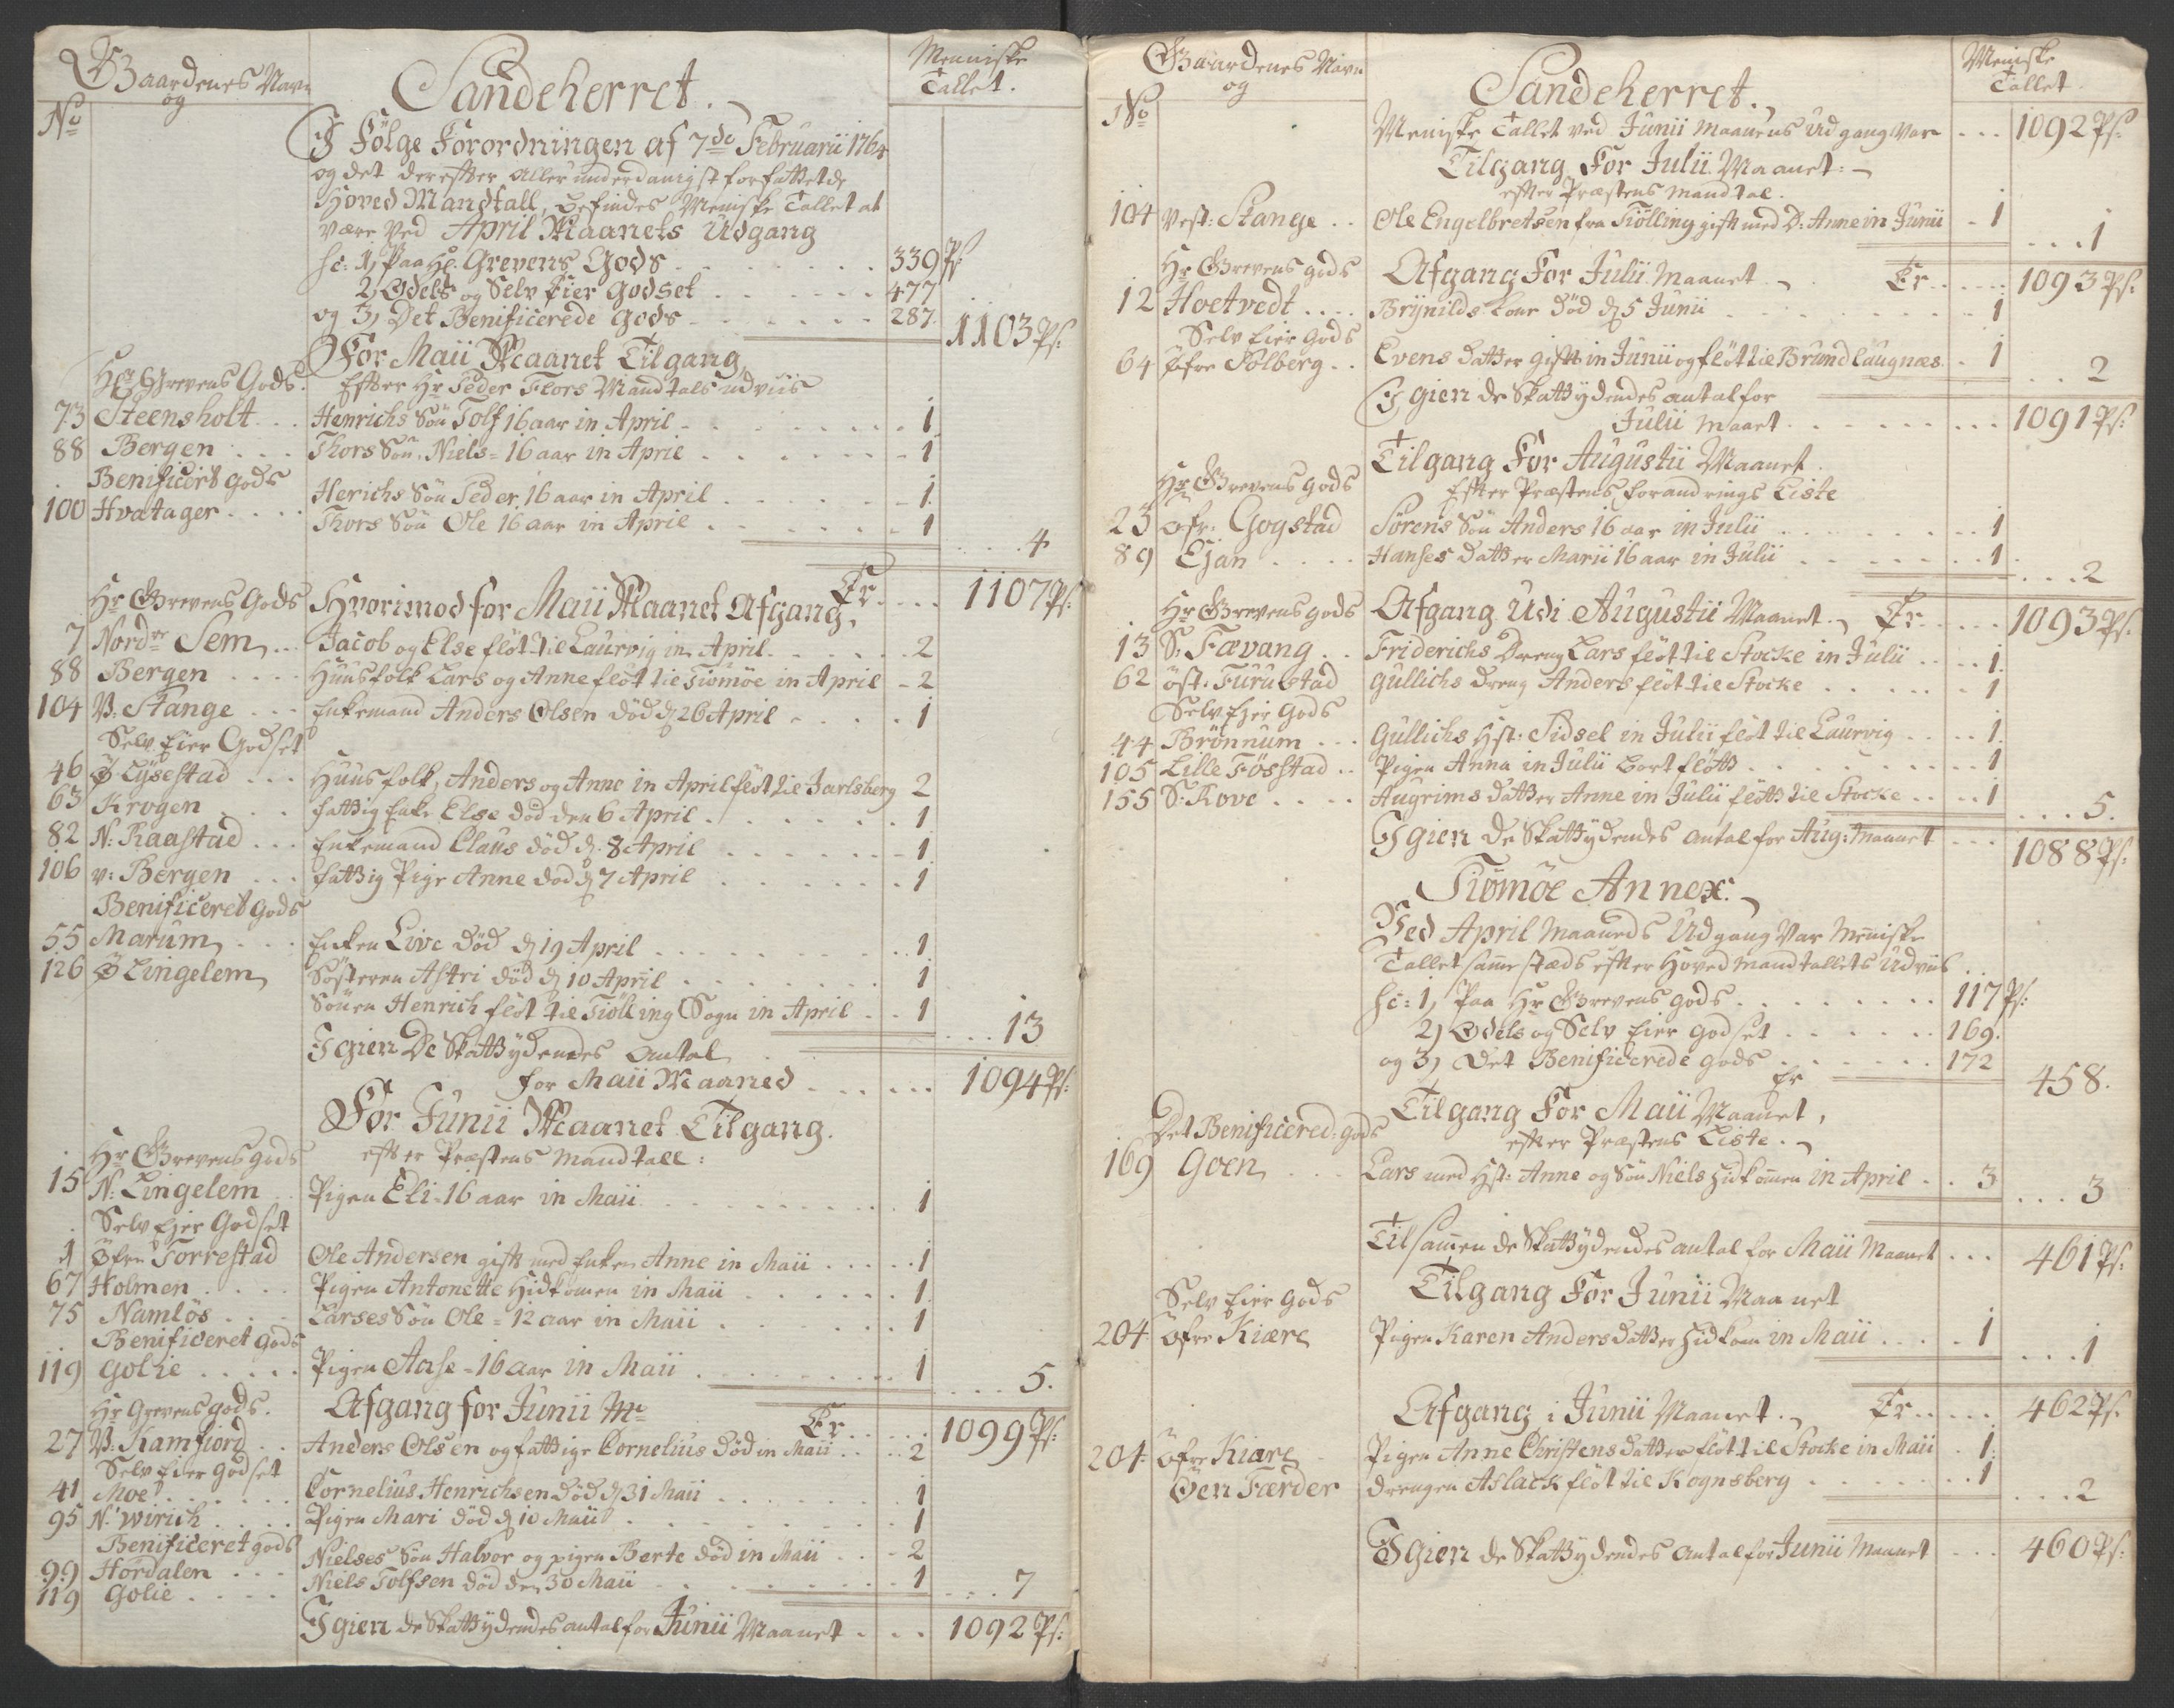 Gaardenes Navn
og
No
Sandeherret.
Menniske
Tallet.
I Fölge Forordningen af 7de Februarii 1764
og det derefter allerunderdanigst forfattede
Hoved Mandtall, befindes Meniske Tallet at
være ved April Maanets Udgang
sc: 1, Paa Hr. Grevens Gods 339 Ps:
2, Odels og Selv Eier Godset 477
og 3, Det Benificerede Gods 287. 1103 Ps:
For Maii Maanet Tilgang
Hr Grevens Gods. Efter Hr Peder Flors Mandtals udviis
73 Steensholt Henrichs Sön Tolf 16 aar in April 1
88 Bergen Thors Sön, Niels = 16 aar in April 1
Benificert Gods
100 Hvatager Herichs Sön Peder 16 aar in April 1
Thors Sön Ole 16 aar in April 1
4
Er 1107 Ps:
Hr Grevens Gods Hvorimod for Maii Maanet Afgang.
7 Nordre Sem Jacob og Else flöt til Laurvig in April 2
88 Bergen Huusfolk Lars og Anne flöt til Tiömöe in April 2
104 V. Stange Enkemand Anders Olsen död d 26 April 1
Selv Eier Godset
46 Ö Lÿsestad Huusfolk, Anders og Anne in April flöt til Jarlsberg 2
63 Krogen fattig Enke Else död den 6 April 1
82 N: Raastad Enkemand Claus död d. 8 April 1
106 v: Bergen fattig Pige Anne död d 7 April 1
Benificeret Gods
55 Marum Enken Live död d 19 April 1
126 Ö Lingelem Sösteren Astri död d 10 April 1
Sönen Henrich flöt til Tiölling Sogn in April 1
13
Igien De Skattÿdendes Antal
for Maii Maaned 1094 Ps:
For Junii Maanet Tilgang.
Hr Grevens gods efter Præstens Mandtall:
15 N: Lingelem Pigen Eli - 16 aar in Maii 1
Selv Ejer Godset
1 Öfre Torrestad Ole Andersen gift med Enken Anne in Maii 1
67 Holmen Pigen Antonette Hidkomen in Maii 1
75 Namlös Larses Sön Ole = 12 aar in Maii 1
Benificeret Gods
119 Golie Pigen Aase - 16 aar in Maii 1
5.
Hr Grevens gods. Afgang for Junii Mt Er 1099 Ps:
27 V: Kamfiord Anders Olsen og fattige Cornelius död in Maii 2
Selv Eier Godset
41 Moe Cornelius Henrichsen död d 31 Maii 1
95 N. Wirich Pigen Mari död d 10 Maii 1
Benificeret gods
99 Hordalen Nielses Sön Halvor og pigen Berte död in Maii 2
119 Golie Niels Tolfsen död den 30 Maii 1
7
Igien de Skattÿdendes antal for Junii Maanet 1092 Ps:
Gaardenes Navn
og
No
Sandeherret.
Meniske
Tallet.
Meniske Tallet ved Junii Maanens Udgang var 1092 Ps:
Tilgang For Julii Maanet:
efter Præstens Mandtal.
104 Vest: Stange Ole Engelbretsen fra Tiölling gift med D: Anne in Junii 1
1
Hr Grevens gods Afgang For Julii Maanet Er 1093 Ps:
12 Hoetvedt Brÿnilds Kone död d 5 Junii 1
Selv Eier Gods
64 Öfre Solberg Evens datter gift in Junii og flöt til Brundlaugnæs 1
2
Igien de Skattÿdendes antal for
Julii Maanet 1091 Ps:
Tilgang For Augustii Maanet.
Hr Grevens gods Efter Præstens forandrings Liste
23 öfr: Gogstad Sörens Sön Anders 16 aar in Julii 1
89 Ejan Hanses datter Marii 16 aar in Julii 1
2
Hr Grevens gods Afgang Udi Augustii Maanet Er 1093 Ps:
13 S: Fævang Friderichs Dreng Lars flöt til Stocke in Julii 1.
62 öst: Furustad Gullichs dreng Anders flöt til Stocke 1
Selv Ejer Gods
44 Brönnum Gullichs Hst: Sidsel in Julii flöt til Laurvig 1.
105 Lille Fösstad Pigen Anna in Julii bort flött 1
155 S: Rove Augrims datter Anne in Julii flöt til Stocke 1
5.
Igien de Skattÿdendes antal for Aug: Maanet 1088 Ps:
Tiömöe Annex.
Ved April Maaneds Udgang var Meniske
Tallet samme stæds efter Hoved Mandtallets Udviis
sc: 1, Paa Hr Grevens gods 117 Ps:
2) Odels og Selv Eier godset 169.
og 3, Det Benificerede gods 172
Er 458.
Tilgang For Maii Maanet,
Det Benificered: gods efter Præstens Liste.
169 Goen Lars med Hst: Anne og Sön Niels Hidkomen in April 3
3
Tilsamen de Skattÿdendes antal for Maii Maanet 461 Ps:
Tilgang For Junii Maanet
Selv Eier Gods
204 Öfre Kiære Pigen Karen Andersdatter Hidkom in Maii 1
1
Afgang i Junii Maanet Er 462 Ps:
204 Öfre Kiære Pigen Anne Christens datter flöt til Stocke in Maii 1.
Öen Færder drengen Aslack flöt til Kognsberg 1
2
Igien de Skattÿdendes antal for Junii Maanet 460 Ps: